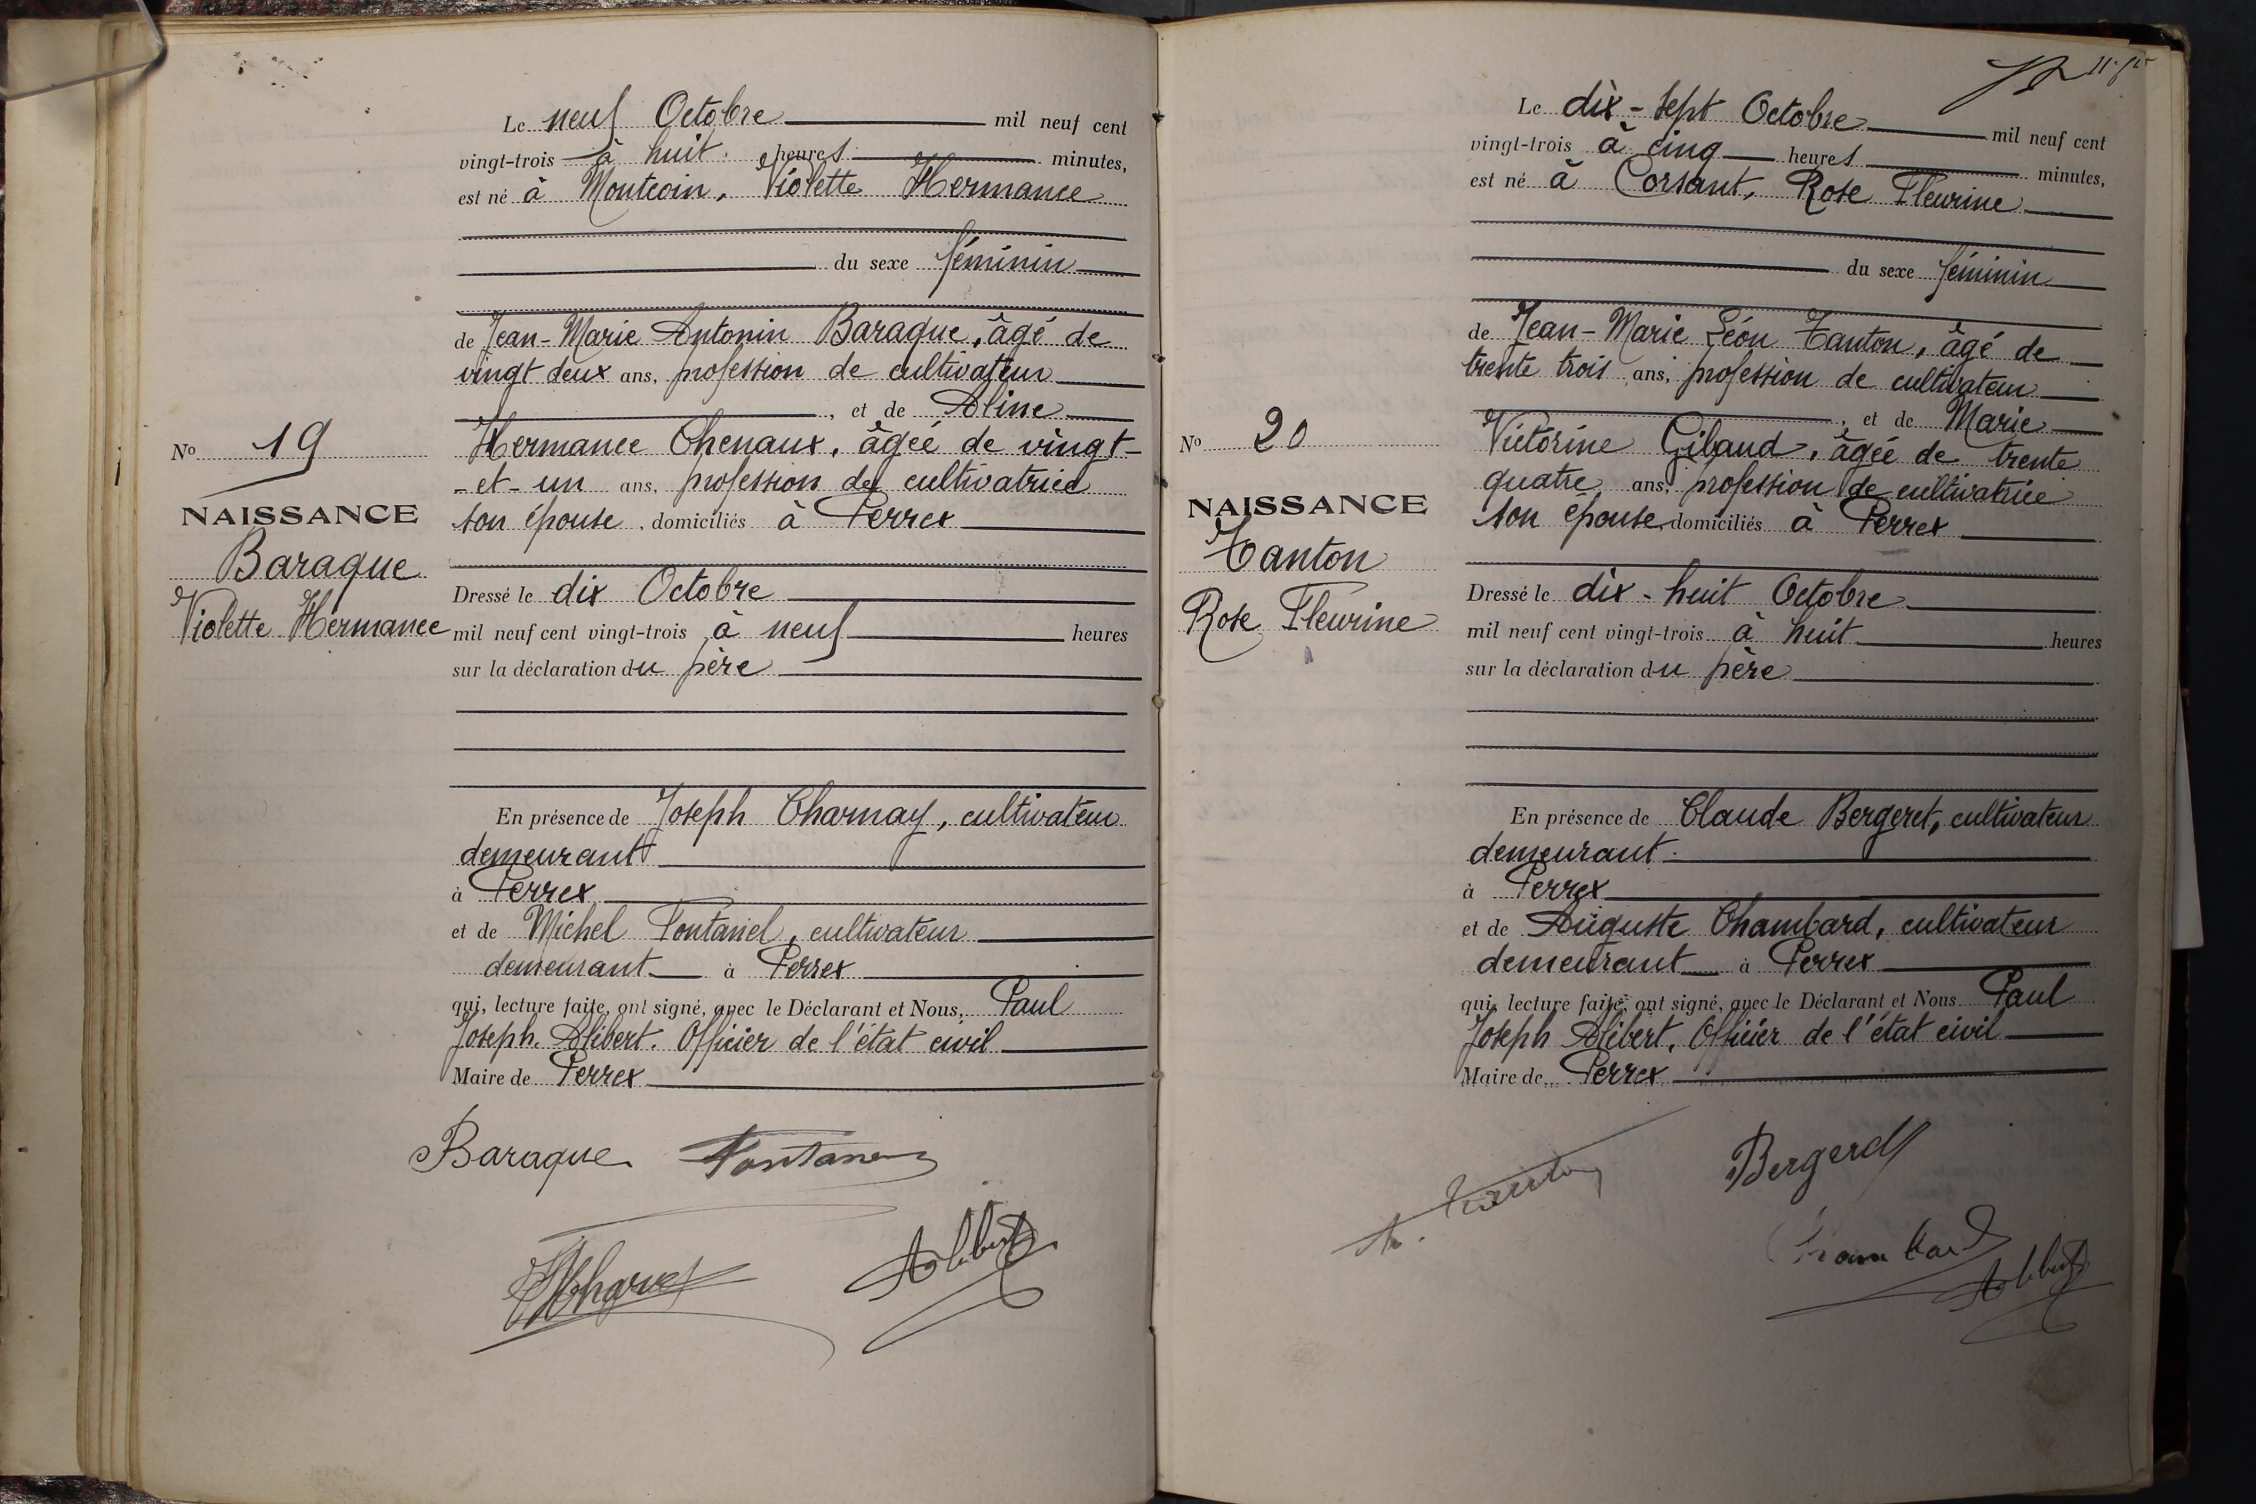 Le neuf Octobre mil neuf cent
vingt-trois à huit heures minutes,
est né à Montcoin, Violette Hermance
du sexe féminin
de Jean-Marie Antonin Baraque, âgé de
vingt deux ans, profession de cultivateur
, et de Aline
Hermance Chenaux, âgée de vingt-
-et-un ans, profession de cultivatrice
son épouse, domiciliés à Perrex
No 19
NAISSANCE
Baraque
Violette Hermance
Dressé le dix Octobre
mil neuf cent vingt-trois à neuf heures
sur la déclaration du père
En présence de Joseph Charnay, cultivateur
demeurant
à Perrex
et de Michel Fontanel, cultivateur
demeurant à Perrex
qui, lecture faite, ont signé, avec le Déclarant et Nous, Paul
Joseph Alibert. Officier de l'état civil
Maire de Perrex
Baraque Fontanel
Alibert
Le dix-sept Octobre mil neuf cent
vingt-trois à cinq heures minutes,
est né à Corsant, Rose Fleurine
du sexe féminin
de Jean-Marie Léon Tanton, âgé de
trente trois ans, profession de cultivateur
, et de Marie
Victorine Gibaud, âgée de trente
quatre ans, profession de cultivatrice
son épouse, domiciliés à Perrex
No 20
NAISSANCE
Tanton
Rose Fleurine
Dressé le dix-huit Octobre
mil neuf cent vingt-trois à huit heures
sur la déclaration du père
En présence de Claude Bergeret, cultivateur
demeurant
à Perrex
et de Auguste Chambard, cultivateur
demeurant à Perrex
qui, lecture faite, ont signé, avec le Déclarant et Nous Paul
Joseph Alibert, Officier de l'état civil
Maire de Perrex
Tanton Bergeret
Chambard
Alibert